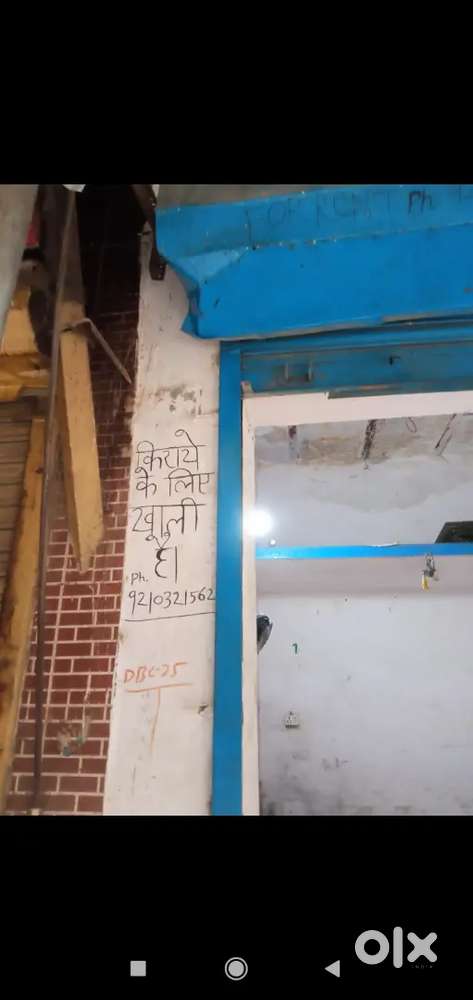 FOR RENT Ph
किराये
के लिए
खाली
है।
Ph.
9210321562
DBC-25
olx
India